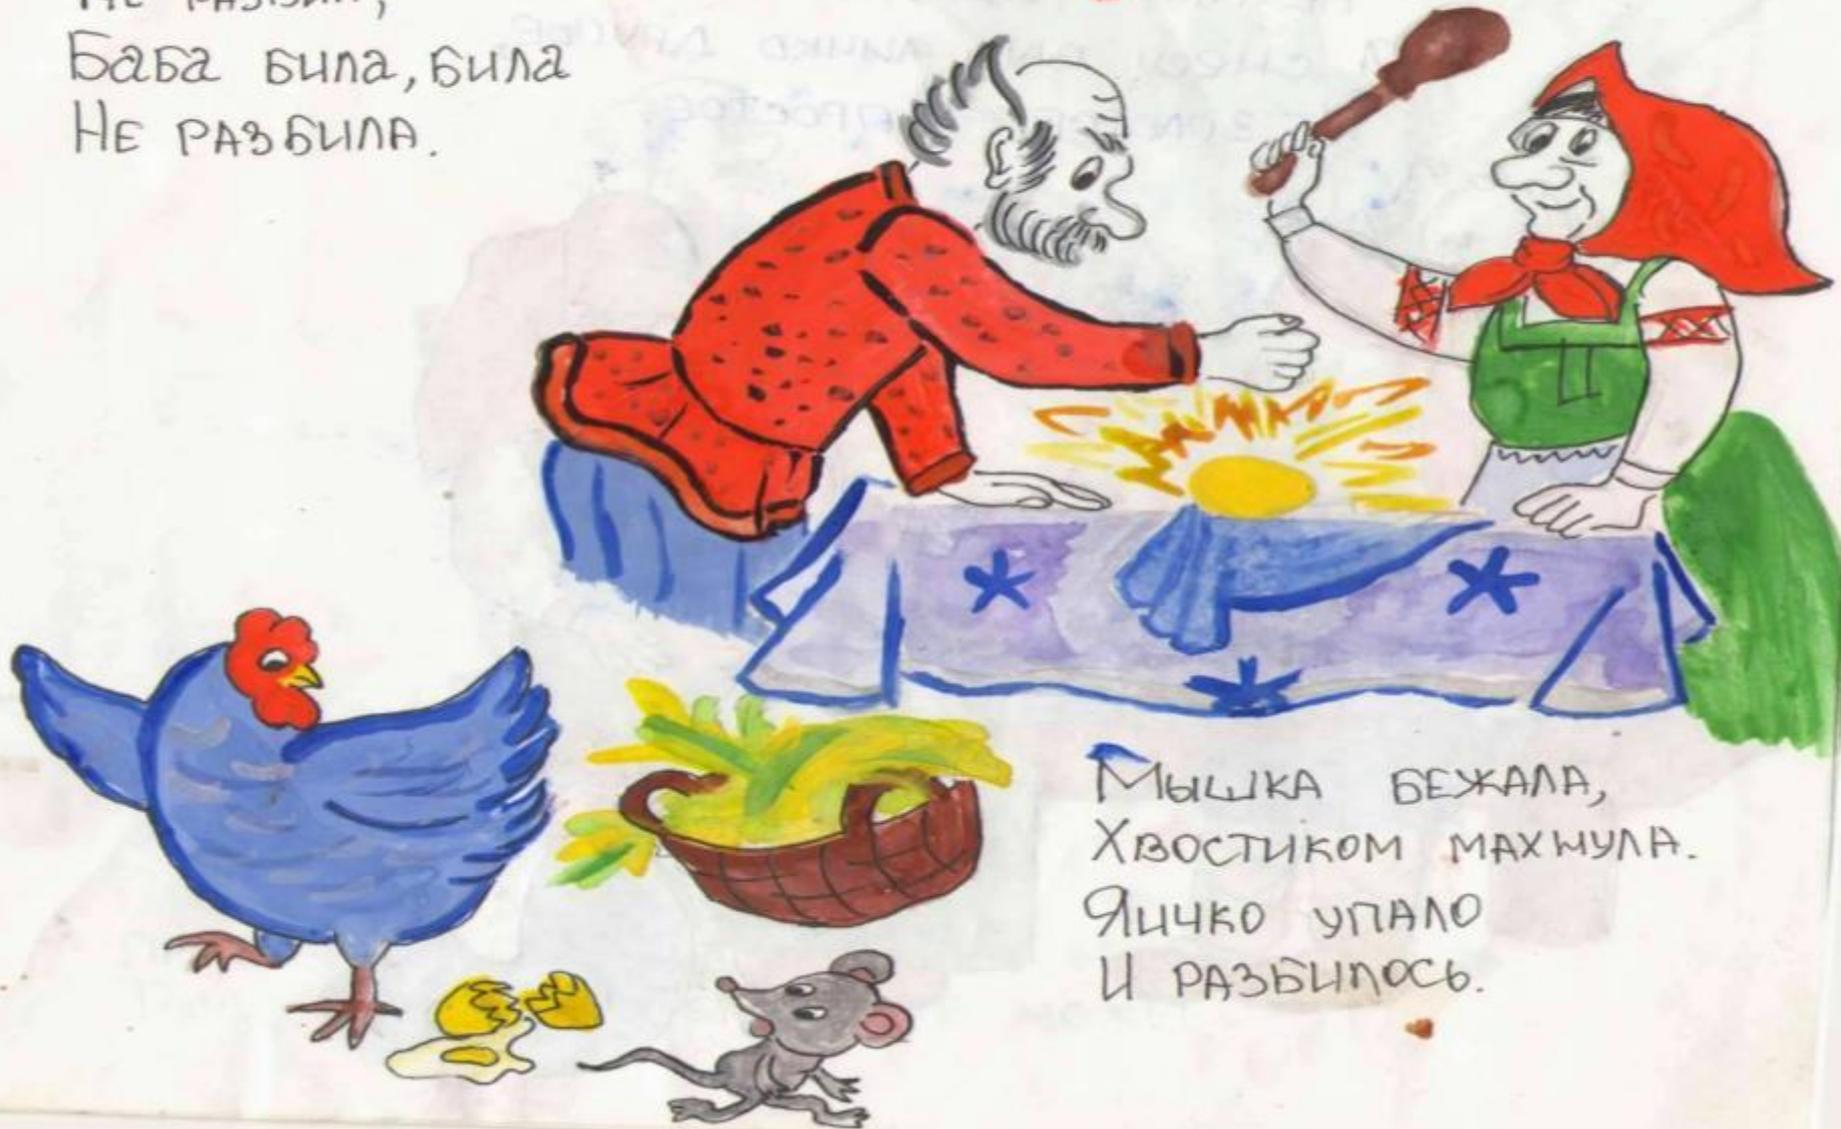 Не разбил,
Баба била, била
Не разбила.
Мышка бежала,
Хвостиком махнула.
Яичко упало
И разбилось.